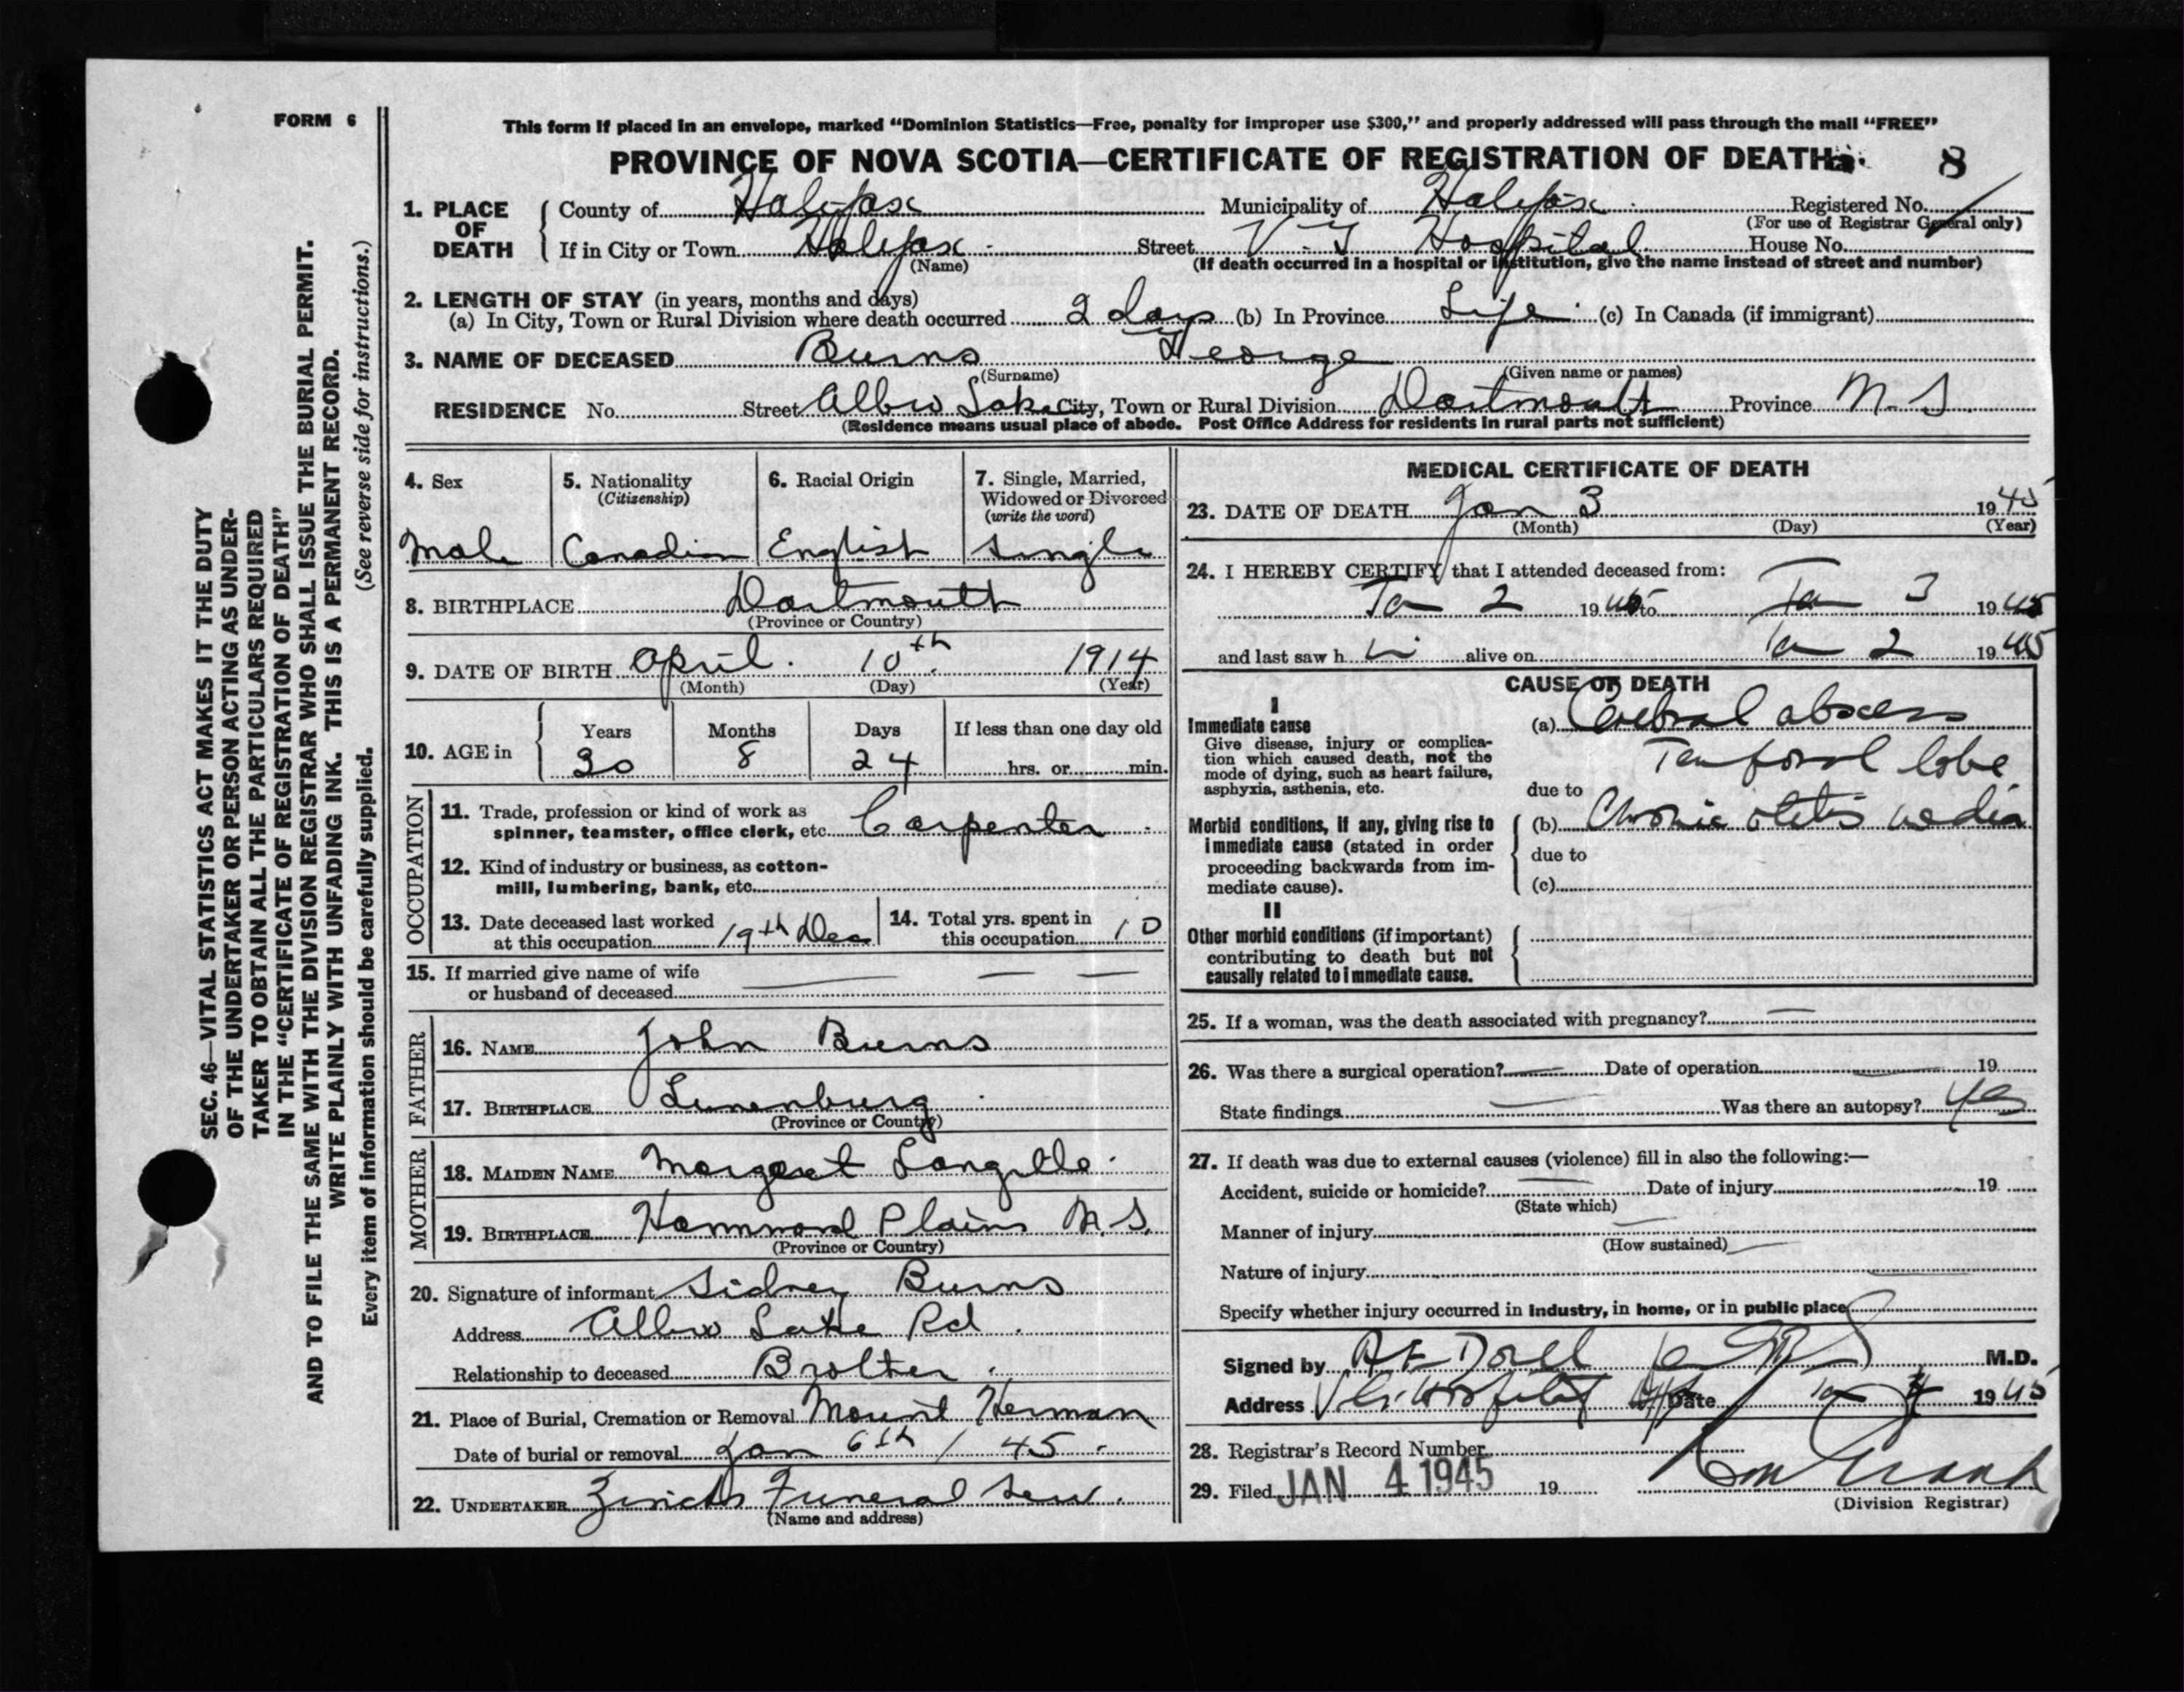 FORM 6
This form if placed in an envelope, marked “Dominion Statistics—Free, penalty for improper use $300,” and properly addressed will pass through the mail “FREE”
PROVINCE OF NOVA SCOTIA—CERTIFICATE OF REGISTRATION OF DEATH 8
1. PLACE OF DEATH
County of Halifax Municipality of Halifax Registered No.
(For use of Registrar General only)
If in City or Town Halifax Street V. G Hospital House No.
(Name) (If death occurred in a hospital or institution, give the name instead of street and number)
2. LENGTH OF STAY (in years, months and days)
(a) In City, Town or Rural Division where death occurred 2 days (b) In Province Life (c) In Canada (if immigrant)
3. NAME OF DECEASED Burns George
(Surname) (Given name or names)
RESIDENCE No. Street Albro Lake City, Town or Rural Division Dartmouth Province N. S.
(Residence means usual place of abode. Post Office Address for residents in rural parts not sufficient)
4. Sex
Male
5. Nationality
(Citizenship)
Canadian
6. Racial Origin
English
7. Single, Married,
Widowed or Divorced
(write the word)
Single
8. BIRTHPLACE Dartmouth
(Province or Country)
9. DATE OF BIRTH April 10th 1914
(Month) (Day) (Year)
10. AGE in
Years Months Days If less than one day old
30 8 24 hrs. or min.
OCCUPATION
11. Trade, profession or kind of work as
spinner, teamster, office clerk, etc. Carpenter
12. Kind of industry or business, as cotton-
mill, lumbering, bank, etc.
13. Date deceased last worked
at this occupation 19th Dec
14. Total yrs. spent in
this occupation 10
15. If married give name of wife
or husband of deceased
FATHER
16. NAME John Burns
17. BIRTHPLACE Lunenburg
(Province or Country)
MOTHER
18. MAIDEN NAME Margaret Langille
19. BIRTHPLACE Hammond Plains N.S.
(Province or Country)
20. Signature of informant Sidney Burns
Address Albro Lake Rd
Relationship to deceased Brother
21. Place of Burial, Cremation or Removal Mount Herman
Date of burial or removal Jan 6th / 45
22. UNDERTAKER Funeral Serv.
(Name and address)
MEDICAL CERTIFICATE OF DEATH
23. DATE OF DEATH Jan 3 1945
(Month) (Day) (Year)
24. I HEREBY CERTIFY that I attended deceased from:
Jan 2 1945 to Jan 3 1945
and last saw h im alive on Jan 2 1945
CAUSE OF DEATH
I
Immediate cause
Give disease, injury or complica-
tion which caused death, not the
mode of dying, such as heart failure,
asphyxia, asthenia, etc.
(a) Cerebral abscess
Temporal lobe
due to
Morbid conditions, if any, giving rise to
immediate cause (stated in order
proceeding backwards from im-
mediate cause).
(b) Chronic otitis media
due to
(c)
II
Other morbid conditions (if important)
contributing to death but not
causally related to immediate cause.
25. If a woman, was the death associated with pregnancy?
26. Was there a surgical operation? Date of operation 19
State findings Was there an autopsy? yes
27. If death was due to external causes (violence) fill in also the following:—
Accident, suicide or homicide? Date of injury 19
(State which)
Manner of injury
(How sustained)
Nature of injury
Specify whether injury occurred in industry, in home, or in public place
Signed by M.D.
Address Date 1945
28. Registrar's Record Number
29. Filed JAN 4 1945 19
(Division Registrar)
SEC. 46—VITAL STATISTICS ACT MAKES IT THE DUTY
OF THE UNDERTAKER OR PERSON ACTING AS UNDER-
TAKER TO OBTAIN ALL THE PARTICULARS REQUIRED
IN THE “CERTIFICATE OF REGISTRATION OF DEATH”
AND TO FILE THE SAME WITH THE DIVISION REGISTRAR WHO SHALL ISSUE THE BURIAL PERMIT.
WRITE PLAINLY WITH UNFADING INK. THIS IS A PERMANENT RECORD.
Every item of information should be carefully supplied. (See reverse side for instructions.)